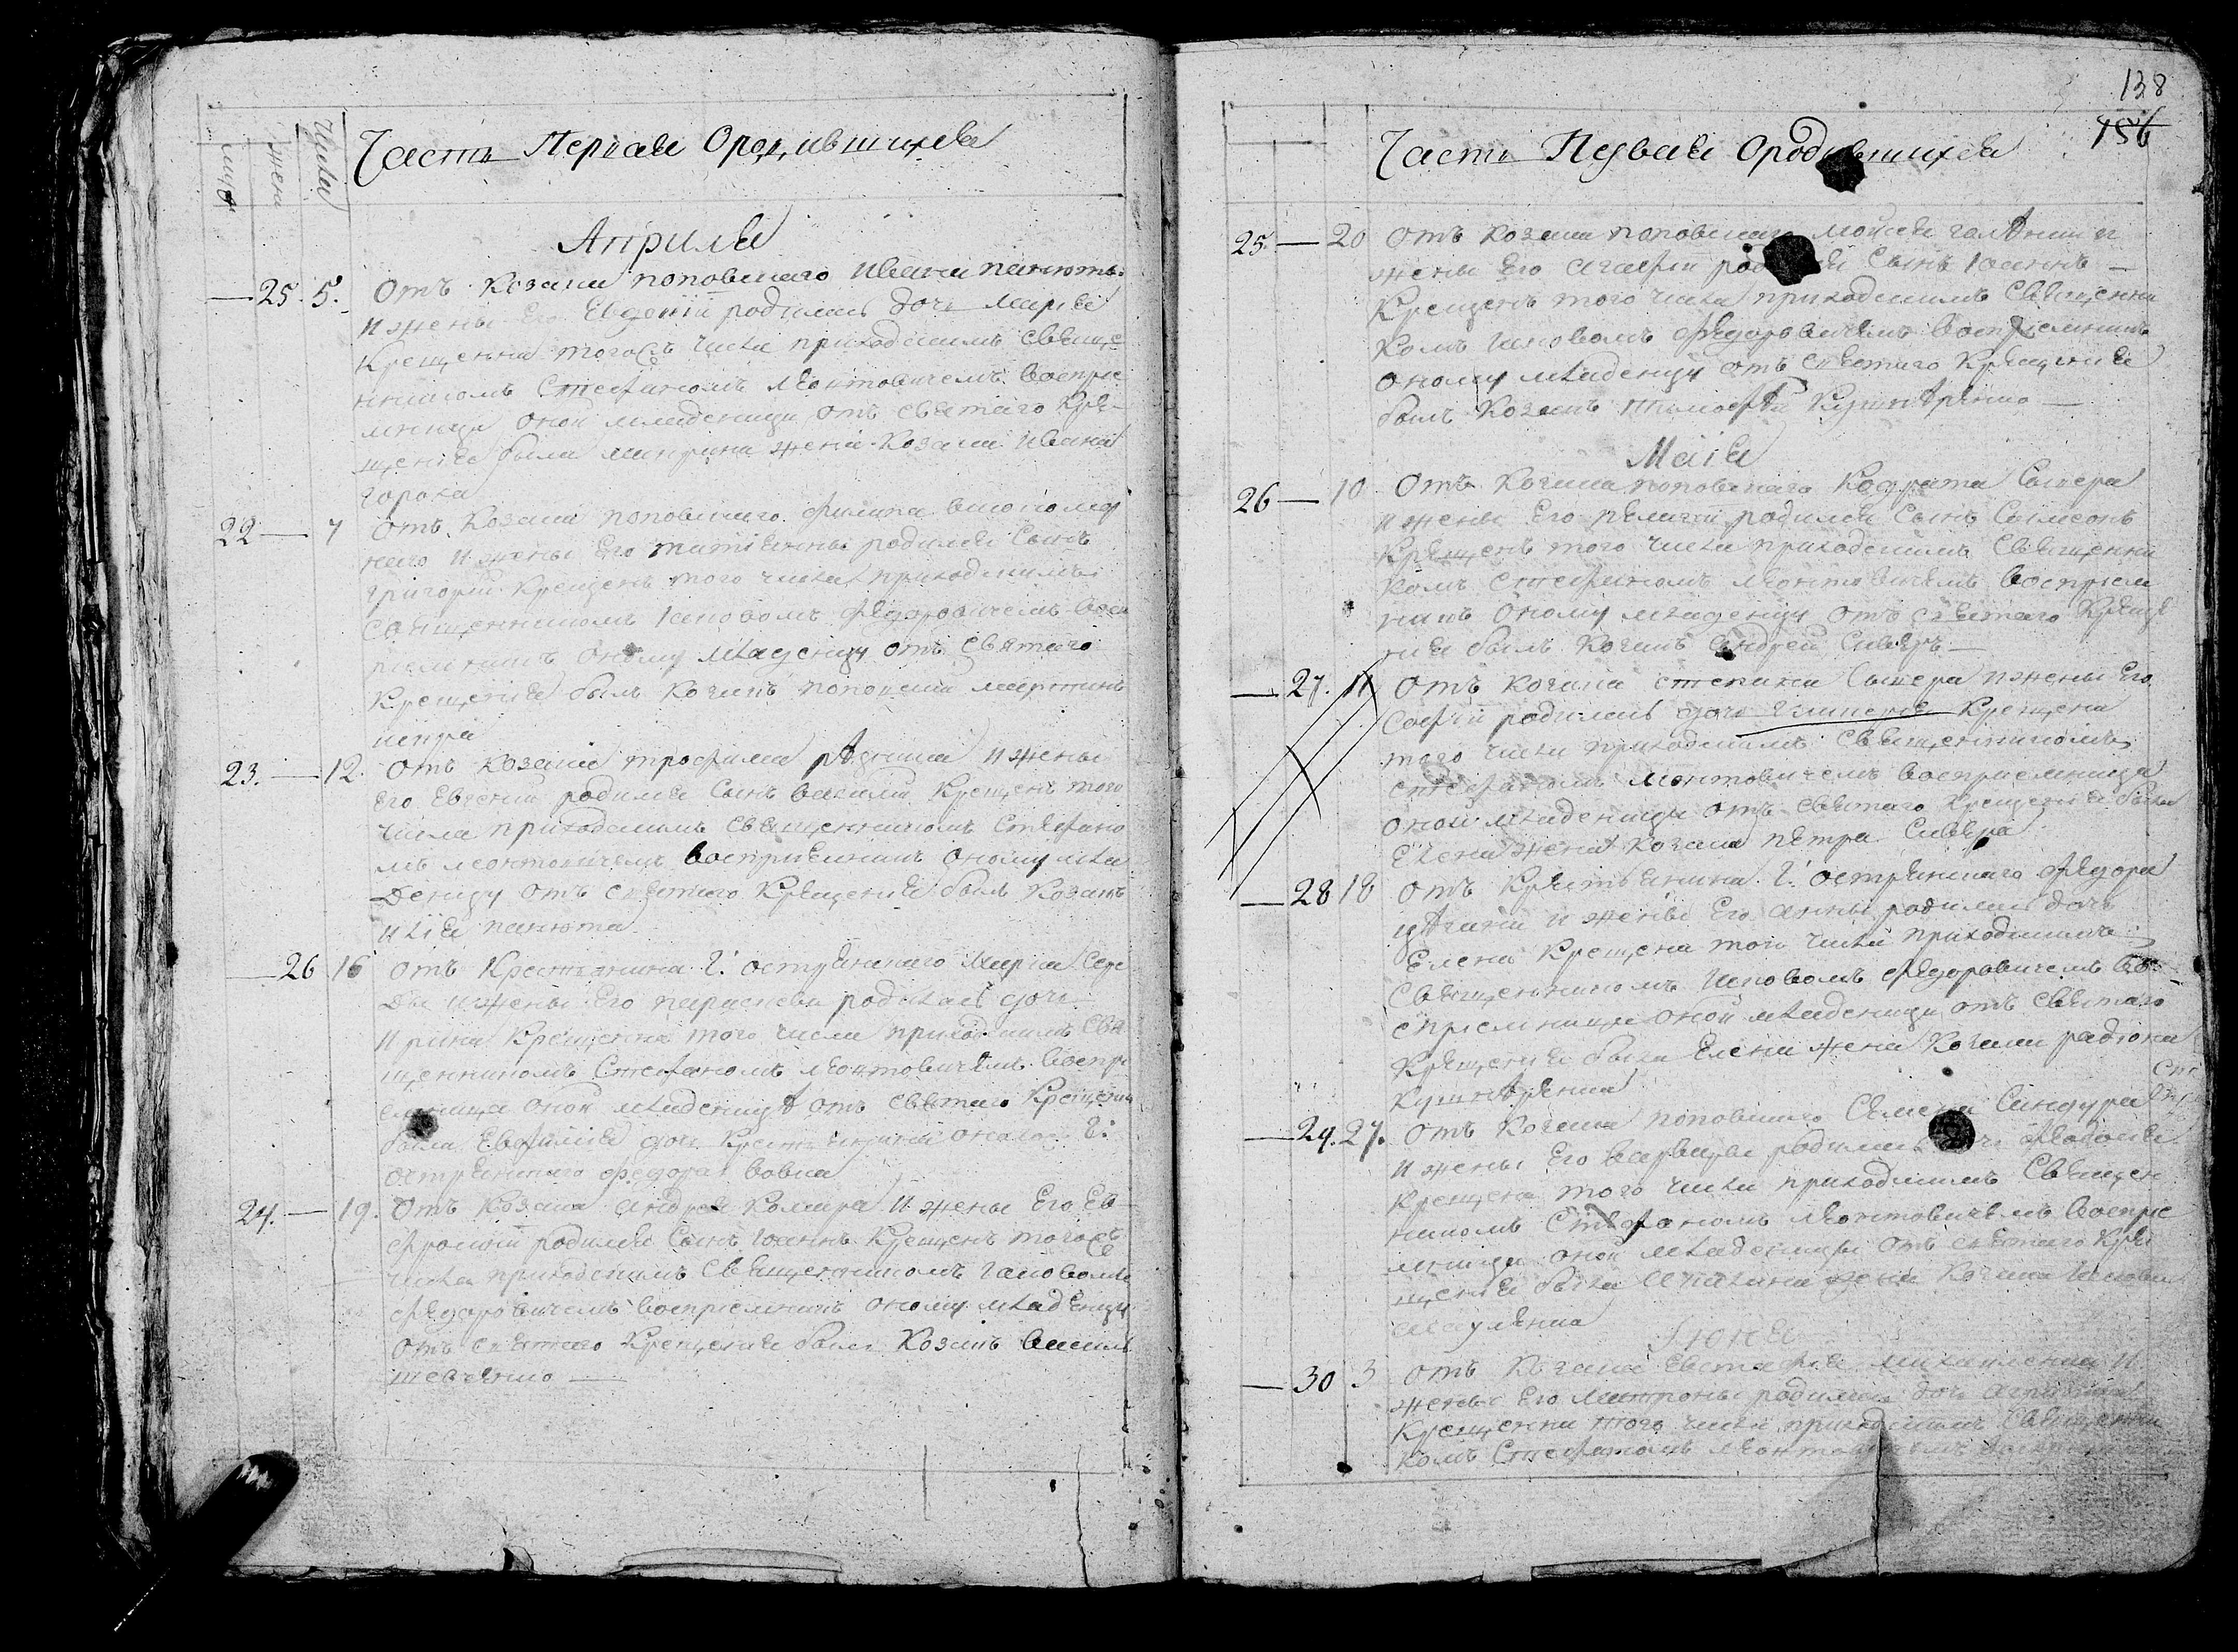 Числа
жен:
муж:
Часть Первая Ородившихся
Априля
25. 5. Отъ козака поповского Ивана панюты
и жены Его Евдокіи родилась дочь Марія
Крещенна тогожъ числа приходскимъ свяще
нникомъ Стефаномъ Леонтовичемъ воспрі
емница оной младеници отъ святаго Кре-
щенія была жена козака Ивана
гороха
22 — 7 Отъ козака поповского Филипа
и жены Его татіянны родился сынъ
григорій Крещенъ того числа приходскимъ
священникомъ Іаковомъ Федоровичемъ восп
ріемникъ оному младенцу отъ святаго
Крещенія былъ козакъ поповскій мартинъ
23. — 12. Отъ козака трофима и жены
Его Евгеніи родился сынъ василій Крещенъ того
числа приходскимъ священникомъ Стефано
мъ леонтовичемъ воспріемникъ оному мла
денцу отъ святаго Крещенія былъ козакъ
илія панюта
26 16 Отъ Крестянина Г: острянского Марка Сере
ды и жены Его параскевы родилась дочь
Ирина Крещенна того числа приходскимъ свя
щенникомъ Стефаномъ Леонтовичемъ воспрі
емница оной младеницѣ отъ святаго Крещенія
была Евфимія дочь Крестянина оного Г:
острянского Федора вовка
24. — 19. Отъ козака андрея Комара и жены Его Ев
фросиніи родился сынъ Іоаннъ Крещенъ тогожъ
числа приходскимъ священникомъ Іаковомъ
Федоровичемъ воспріемникъ оному младенцу
отъ святаго Крещенія былъ козакъ василь
шевченко —
138
156
Часть Первая Ородившихся
25. — 20 Отъ козака поповского мойсея и
жены Его агафіи сынъ Іоаннъ —
Крещенъ того числа приходскимъ священни
комъ Іаковомъ Федоровичемъ воспріемникъ
оному младенцу отъ святаго Крещенія
былъ козакъ тимофѣй Кушнѣренко —
Маія
26 — 10 Отъ козака поповского Кодрата Сикера
и жены Его родился сынъ Симеонъ
Крещенъ того числа приходскимъ священни
комъ Стефаномъ Леонтовичемъ воспріем
никъ оному младенцу отъ святаго Креще
нія былъ козакъ андрей —
— 27. 11 Отъ козака степана Сикера и жены Его
Софіи родилась дочь Гликерія Крещена
того числа приходскимъ священникомъ
стефаномъ Леонтовичемъ воспріемница
оной младеници отъ святаго Крещенія была
Елена жена козака петра
— 28 18 Отъ Крестьянина Г: острянского Федора
и жены Его анны родилась дочь
Елена Крещена того числа приходскимъ
священникомъ Іаковомъ Федоровичемъ во-
спріемница оной младеници отъ святаго
Крещенія была Елена жена козака радіона
Кушнѣренка
— 29. 27. Отъ козака поповского Семена
и жены Его варвары родилась дочь Феодосія
Крещена того числа приходскимъ священ
никомъ Стефаномъ Леонтовичемъ воспріе
мница оной младеници отъ святаго Кре
щенія была жена козака Іакова
Іюня
— 30 3 Отъ козака Евстафія михайленка и
жены Его родилась дочь
Крещенна того числа приходскимъ священни
комъ Стефаномъ Леонтовичемъ